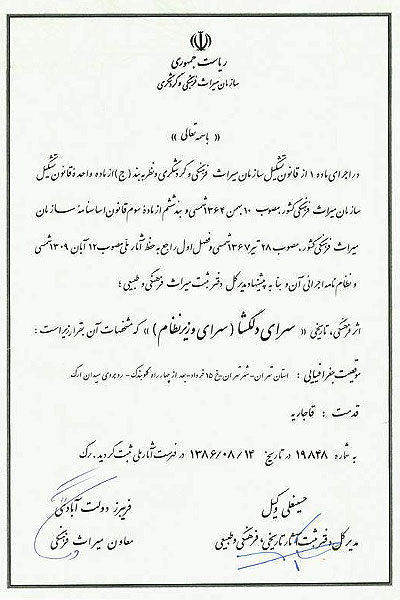 ریاست جمهوری
سازمان میراث فرهنگی و گردشگری
« باسمه تعالی »
در اجرای ماده ۱ از قانون تشکیل سازمان میراث فرهنگی و گردشگری و نظر به بند (ج) از ماده واحدهٔ قانون تشکیل
سازمان میراث فرهنگی کشور مصوب ۱۰ بهمن ۱۳۶۴ شمسی و بند ششم از مادهٔ سوم قانون اساسنامهٔ سازمان
میراث فرهنگی کشور مصوب ۲۸ تیر ۱۳۶۷ شمسی و فصل اول راجع به حفظ آثار ملی مصوب ۱۲ آبان ۱۳۰۹ شمسی
و نظام نامه اجرائی آن و بنا به پیشنهاد مدیر کل دفتر ثبت میراث فرهنگی و طبیعی ؛
اثر فرهنگی، تاریخی « سرای دلگشا (سرای وزیر نظام) » که مشخصات آن بقرار زیر است :
موقعیت جغرافیایی : استان تهران - شهر تهران - خ ۱۵ خرداد - بعد از چهار راه گلوبندک - روبروی میدان ارک
قدمت : قاجاریه
به شماره ۱۹۸۴۸ در تاریخ ۱۳۸۶/۰۸/۱۴ در فهرست آثار ملی ثبت گردید.
حسینعلی وکیل
مدیر کل دفتر ثبت آثار تاریخی، فرهنگی و طبیعی
فریبرز دولت آبادی
معاون میراث فرهنگی